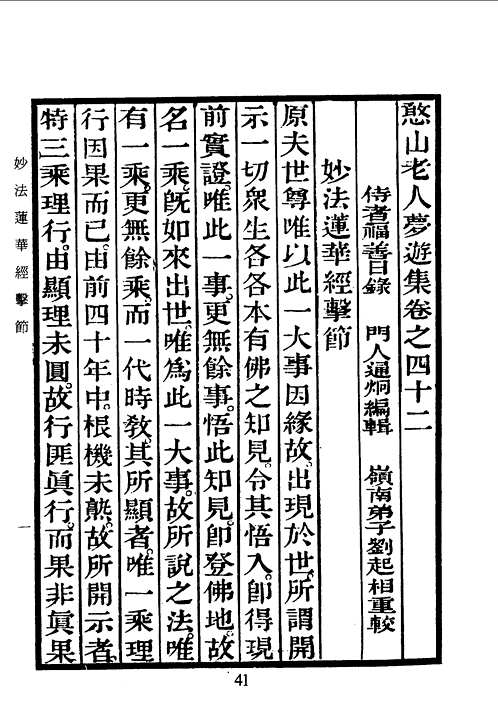 憨山老人夢遊集卷之四十二
侍者福善日錄　門人通炯編輯　嶺南弟子劉起相重較
妙法蓮華經擊節
原夫世尊唯以此一大事因緣故。出現於世。所謂開
示一切衆生各各本有佛之知見。令其悟入。卽得現
前實證。唯此一事。更無餘事。悟此知見。卽登佛地。故
名一乘。旣如來出世。唯爲此一大事。故所說之法。唯
有一乘。更無餘乘。而一代時敎。其所顯者。唯一乘理
行因果而已。由前四十年中。根機未熟。故所開示者。
特三乘理行。由顯理未圓。故行匪眞行。而果非眞果
妙法蓮華經擊節
一
41